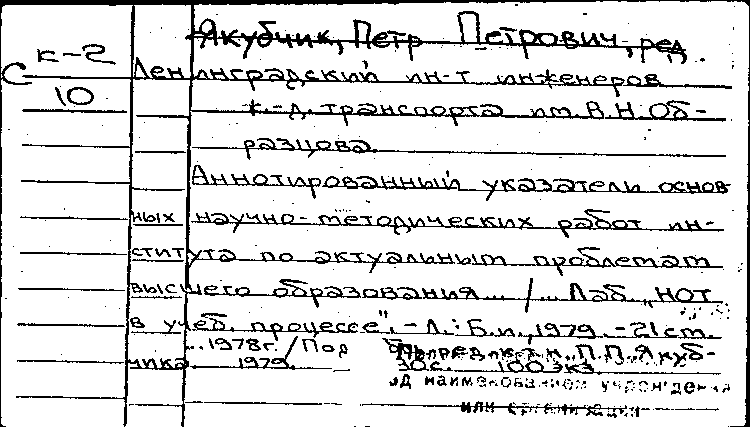 Якубчик, Петр Петрович, ред.
к-2
С
Ленинградский ин-т инженеров
10
ж.-д. транспорта им. В.Н. Об-
разцова.
Аннотированный указатели основ
ных научно-методических работ ин-
ститута по актуальным проблемам
высшего образования... /... Лаб. „НОТ
в учеб. процессе". - Л.: Б.и., 1979. - 21 ст.
...1978г. / Под ред. к.т.н. П.П. Якуб-
чика. 1979. 30 с. 100 экз.
од наименованием учрежде
или организации